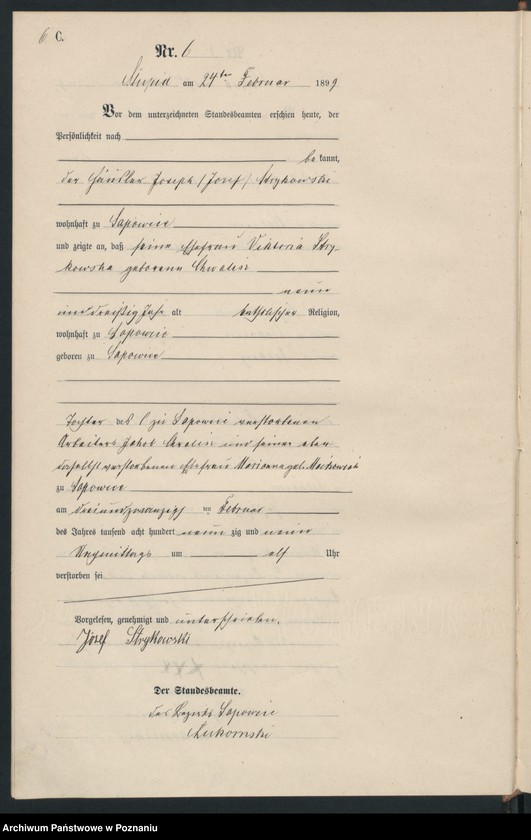 6 C.
Nr. 6
Słupia am 24ten Februar 1899
Vor dem unterzeichneten Standesbeamten erschien heute, der
Persönlichkeit nach
bekannt,
der Häusler Joseph /Josef/ Strykowski
wohnhaft zu Sapowice
und zeigte an, daß seine Ehefrau Viktoria Stry-
kowska geborene
neun
und dreißig Jahr alt katholischer Religion,
wohnhaft zu Sapowice
geboren zu Sapowice
Tochter des zu Sapowice verstorbenen
Arbeiters Jakob und seiner eben
daselbst verstorbenen Ehefrau Marianna geb.
zu Sapowice
am dreiundzwanzigsten Februar
des Jahres tausend acht hundert neunzig und neun
Vormittags um elf Uhr
verstorben sei
Vorgelesen, genehmigt und unterschrieben.
Józef Strykowski
Der Standesbeamte.
des Bezirks Sapowice
Archiwum Państwowe w Poznaniu